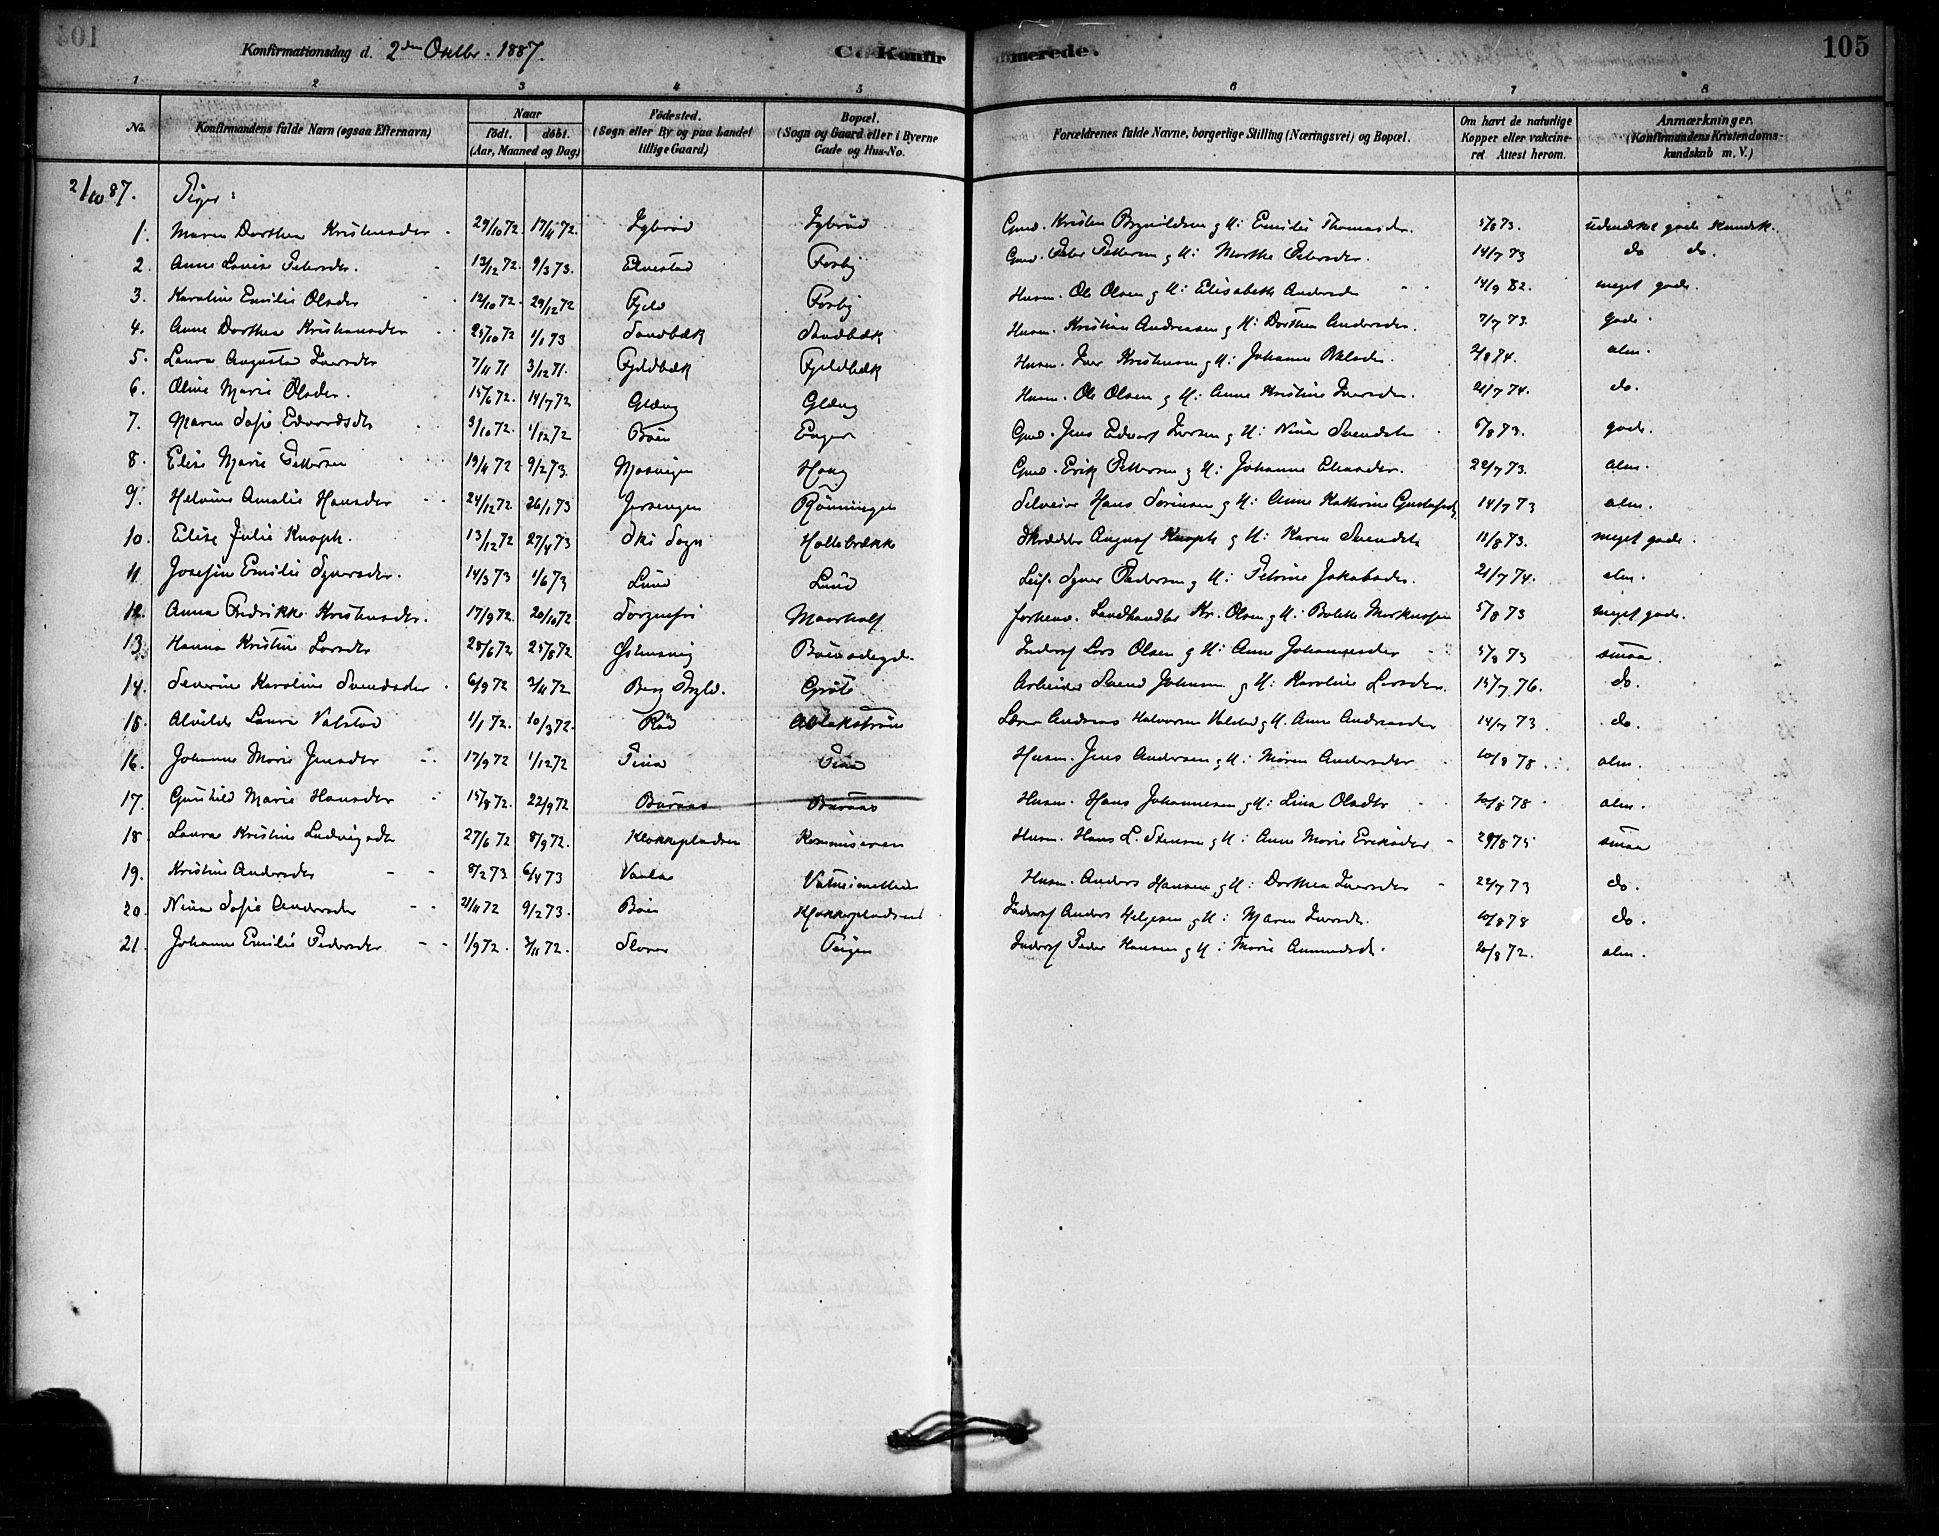 Konfirmationsdag d. 2den Oktbr. 1887. C. Konfirmerede. 105
1 2 3 4 5 6 7 8
No. Konfirmandens fulde Navn (ogsaa Efternavn) Naar født. døbt. (Aar, Maaned og Dag) Fødested. (Sogn eller By og paa Landet tillige Gaard) Bopæl. (Sogn og Gaard eller i Byerne Gade og Hus-No. Forældrenes fulde Navne, borgerlige Stilling (Næringsvei) og Bopæl. Om havt de naturlige Kopper eller vakcineret Attest herom. Anmærkninger. (Konfirmandens Kristendomskundskab m. V.)
2/10 87. Piger:
1. Maren Dorthea Kristensdr. 29/10 72. 17/11 72. Lybrød Lybrød Gmd. Kristen Brynildsen g H: Emilie Thomasdr. 5/8 73. udmærket gode Kundsk.
2. Anne Lovise Petersdr. 13/12 72. 9/3 73. Elvestad Fosby Gmd. Peter Pettersen g H: Marthe Petersdr. 14/7 73 do do.
3. Karoline Emilie Olsdr 12/10 72. 29/12 72 Fjeld Fosby Husm. Ole Olsen g H: Elisabeth Andersdr 14/9 82. meget gode.
4. Anne Dorthea Kristiansdr 25/10 72 1/1 73 Sandbæk Sandbæk Husm. Kristian Andreasen g H: Dorthea Andersdr. 7/7 73. gode.
5. Laura Augusta Iversdr 7/11 71 3/12 71. Fjeldbæk Fjeldbæk Husm. Iver Kristensen g H: Johanne 2/8 74. alm.
6. Oline Marie Olsdr. 15/6 72. 14/7 72 Glæng Glæng Husm. Ole Olsen g H: Anne Kristine Iversdr. 21/7 74. do.
7. Maren Sofie Edvardsdtr 3/10 72. 1/12 72 Böen Enger Gmd. Jens Edvard Iversen g H: Nina Svendsdtr 5/8 73. gode.
8. Elise Marie Pettersen 19/4 72 9/2 73. Mosvigen Haug Gmd. Erik Pettersen g H: Johanne 22/7 73. alm.
9. Helvine Amalie Hansdr 24/12 72 26/1 73 Jersengen Rönningen Selveier Hans Sørensen g H: Anne Kathrine Gustafsdtr 14/7 73 alm.
10. Elise Julie Knoph. 13/12 72 27/4 73 Ski Sogn Hallebrække Skrædder August Knoph g H: Karen Svendsdtr 18/8 73. meget gode.
11. Josefine Emilie Syversdr. 14/3 73 1/6 73 Lund Lund Leil. Syver Pedersen g H: Petrine Jakobsdr. 21/7 74. alm.
12. Anna Fredrikke Kristensdr. 17/9 72. 20/10 72 Sorgenfri Moorholf Forhenv. Landhandler Kr. Olsen g H: Bolette 5/8 73 meget gode.
13. Hanna Kristine Larsdr 28/6 72 25/8 72 Østensvig Inderst Lars Olsen g H: Anne Johannesdr 5/8 73 smaa.
14. Severine Karoline Svendsdr 6/9 72 3/11 72 Berg Grøtö Arbeider Svend Johnsen g H: Karoline Larsdr. 15/7 76. do.
15. Alvilde Laura Valstad 1/1 72. 10/3 72. Röd Lærer Andreas Halvorsen Valstad g H: Anne Andreasdr 14/7 73 do.
16. Johanne Marie Jensdr 17/9 72 1/12 72 Tina Tina Husm. Jens Andersen g H: Maren Andersdr 10/8 78. alm.
17. Gunhild Marie Hansdr 15/8 72. 22/9 72 Buraas Buraas Husm. Hans Johannesen g H: Lina Olsdtr 10/8 78 alm.
18. Laura Kristine Ludvigsdtr 27/6 72 8/9 72. Klokkepladsen Husm. Hans L. g H: Anne Marie Eriksdtr 29/8 75 smaa
19. Kristine Andersdr 8/2 73 6/4 73 Husm. Anders Hansen g H: Dorthea Iversdr 22/7 73 do.
20. Nina Sofie Andersdr 21/11 72 9/2 73. Böen Klokkepladsen Inderst Anders Helgesen g H: Maren Iversdtr. 10/8 78 do.
21. Johanne Emilie Pedersdr 1/9 72. 3/11 72. Slorer Teigen Inderst Peder Hansen g H: Marie Amundsdtr. 20/8 72. alm.